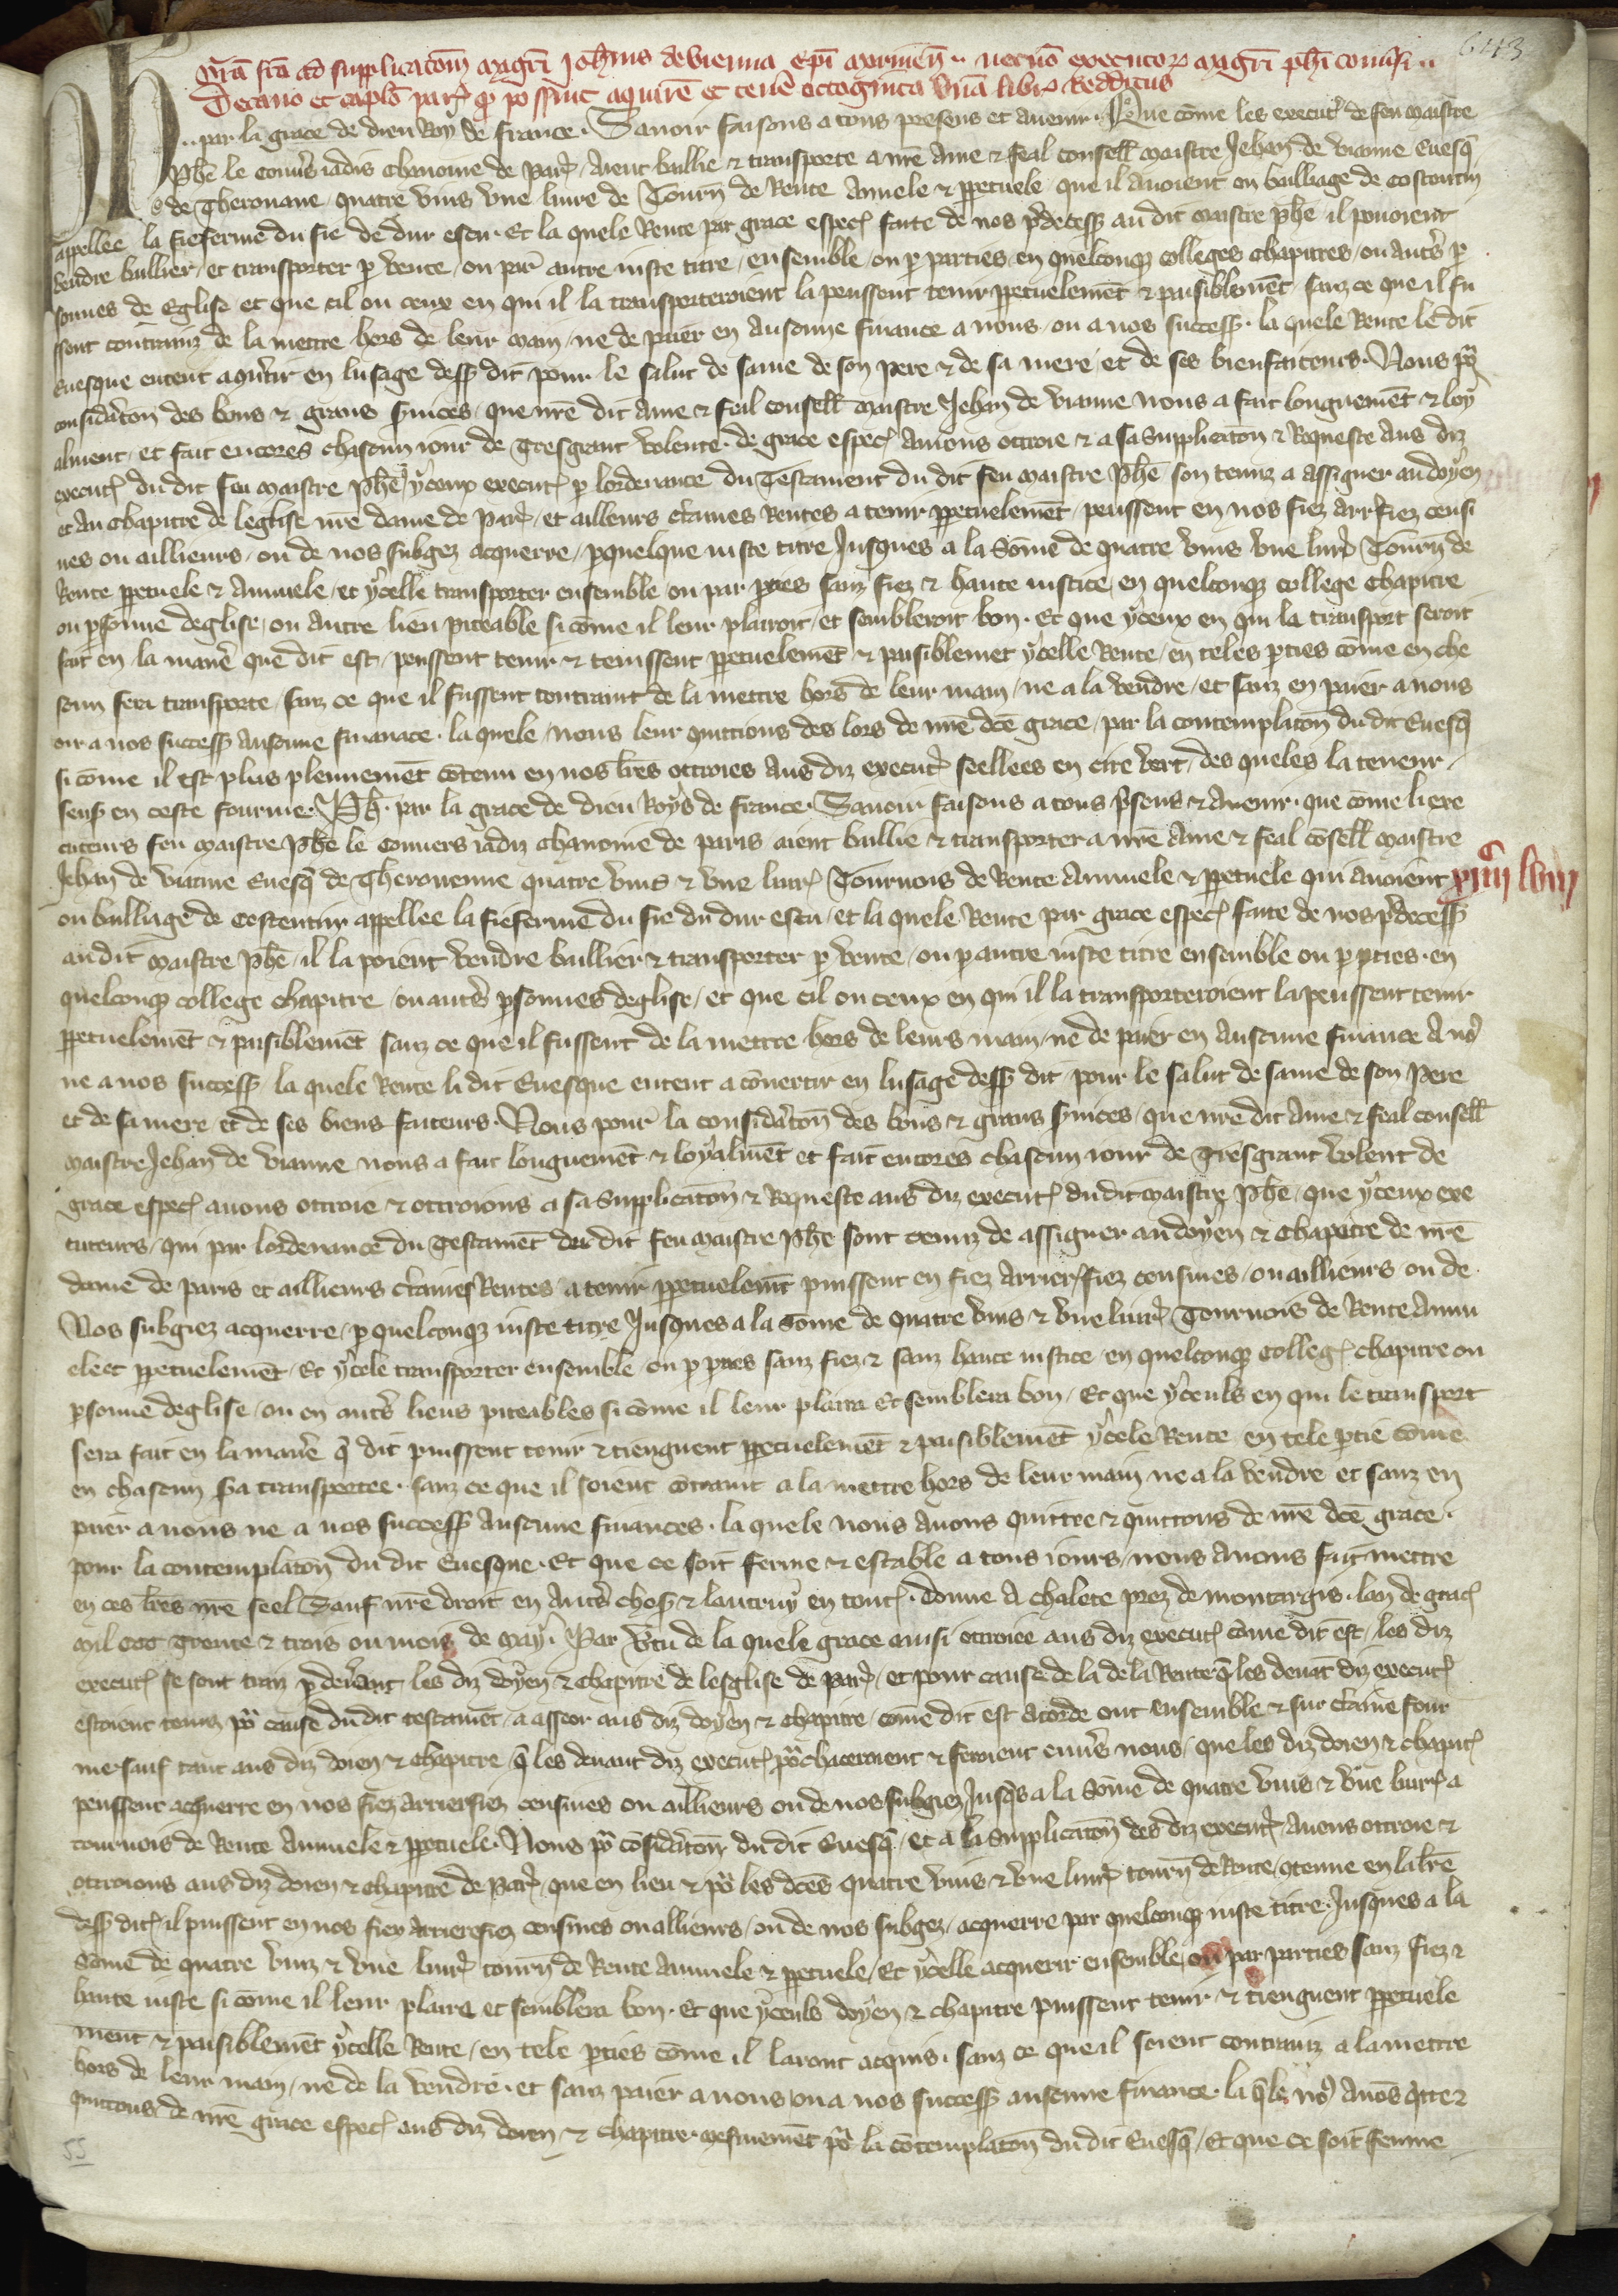 643
Gr̃a fc̃a ad supplicatõm mag̃ri Joh̃nis de vienna ep̃i morinen̄ .. necnõ executoꝝ mag̃ri ph̃i conũsi ..
Decano et cap̃lo par̃ ꝙ possint aquirẽ et tenẽ octoginta vnã libr̃ Redditus
Ph̃ .. par la grace de dieu Roy de france. Sauoir faisons a tous presens et auenir. Que cõme les execut̃ de feu maistre
Ph̃e le conũs iadis chanoine de Par̃ aient baillie & transporte a nr̃e ame & feal conseill̃ maistre Jehan de vianne Euesq̃
de Therouane quatre vins vne liure de Tourn̄ de Rente annele & ꝑpetuele que il auoient ou bailliage de Costentin
appellee la fiefferme du fie de dur escu. Et la quele Rente par grace espec̃ faite de nos p̃decess̃ au dit maistre ph̃e il pouoient
vendre baillier et transporter ꝑ vente ou par autre iuste titre ensemble ou ꝑ parties en quelconq̃ colleges chapitres ou autr̃s ꝑ
sonnes de Eglise et que cil ou ceux en qui il la transporteroient la peussent tenir ꝑpetuelemẽt & paisiblemẽt sanz ce que il fu
ssent contrainz de la mettre hors de leur main ne de paier en aucune finance a nous ou a nos success̃. la quele Rente le dit
Euesque entent a cõũtir en lusage dess̃ dit pour le salut de same de son pere & de sa mere et de ses bienfaiteurs. Nous po᷑
consid̃atõn des bons & grans s̃uices que nr̃e dit ame & feal conseill̃ maistre Jehan de vianne nous a fait longuemẽt & loy
alment et fait encores chascun iour de Tresgrant volente. de grace espec̃ auions ottroie & a sa supplicatõn & Requeste aus diz
execut̃ du dit feu maistre Ph̃e yceux execut̃ ꝑ lordenance du Testament du dit feu maistre Ph̃e son tenuz a assigner au doyen
et au Chapitre de leglise nr̃e dame de Par̃ et ailleurs c̃taines Rentes a tenir ꝑpetuelemẽt peussent en nos fiez arr̃fiez censi
ues ou aillieurs ou de nos subgez acquerre ꝑ quelque iuste titre Jusques a la Sõme de quatre vins vne liur̃ Tourn̄ de
Rente ꝑpetuele & annuele et ycelle transporter ensemble ou par ꝑties sanz fiez & haute iustice en quelconq̃ college chapitre
ou ꝑsonne deglise ou autre lieu piteable si cõme il leur plairoit et sembleroit bon. Et que yceux en qui la transport seroit
fait en la manẽ que dit est peussent tenir & tenissent ꝑpetuelemẽt & paisiblemet ycelle Rente en teles ꝑties cõme en cha
scun sera transporte sanz ce que il fussent contraint de la mettre hors de leur main ne a la vendre et sanz en paier a nous
ou a nos success̃ aucune finance. la quele nous leur quittions des lors de nr̃e dc̃e grace par la contemplatõn du dit Euesq̃
si cõme il est plus plennemẽt cõtenu en nos lr̃es ottroies aus diz execut̃ seellees en cire vert des queles la teneur
sens̃ en ceste fourme. Ph̃. par la grace de dieu Roys de france. Sauoir faisons a tous p̃sens & auenir. que cõme li exe
cuteurs feu maistre Ph̃e le Conuers iadiz chanoine de paris aient baillie & transporter a nr̃e ame & feal cõseill̃ maistre
Jehan de vianne Euesq̃ de Therouenne quatre vins & vne liur̃ Tournois de Rente annuele & ꝑpetuele qui auoient
ou bailliage de Costentin appellee la fiefferme du fie du dur escu et la quele Rente par grace espec̃ faite de nos p̃decess̃
audit maistre Ph̃e il la poient vendre baillier & transporter ꝑ vente ou ꝑ autre iuste titre ensemble ou ꝑ ꝑties. en
quelconq̃ college chapitre ou autr̃s ꝑsonnes deglise et que cil ou ceux en qui il la transporteroient la peussent tenir
ꝑpetuelemẽt & paisiblemẽt sanz ce que il fussent de la mettre hors de leurs main ne de paier en aucune finance a no᷒
ne a nos success̃ la quele Rente li dit Euesque entent a cõuertir en lusage dess̃ dit pour le salut de same de son Pere
et de sa mere et de ses biens faiteurs. Nous pour la consid̃atõn des bons & grans s̃uices que nr̃e dit ame & feal conseill̃
maistre Jehan de vianne nous a fait longuemẽt & loyalmẽt et fait encores chascun iour de Tresgrant volent de
grace espec̃ auons ottroie & ottroions a sa supplicatõn & Requeste aus diz execut̃ du dit maistre Ph̃e que yceux exe
cuteurs qui par lordenance du Testamẽt du dit feu maistre Ph̃e sont tenuz de assigner au doyen & Chapitre de nr̃e
dame de paris et aillieurs c̃taines Rentes a tenir ꝑpetuelemẽt puissent en fiez arrier̃fiez censiues ou aillieurs ou de
Nos subgiez acquerre ꝑ quelconq̃ iuste titre Jusques a la Sõme de quatre vins & vne liur̃ Tournois de Rente annu
ele et ꝑpetuelemẽt Et ycele transporter ensemble ou ꝑ ꝑties sanz fiez & sanz haute iustice en quelconq̃ colleg̃ chapitre ou
ꝑsonne deglise ou en autr̃s lieus piteables si cõme il leur plaira Et semblera bon Et que yceuls en qui le transport
sera fait en la manẽ q̃ dit puissent tenir & tienguent ꝑpetuelemẽt & paisiblemẽt ycele Rente en tele ꝑtie cõme
en chascun s̃a transportee. sanz ce que il soient cõtraint a la mettre hors de leur main ne a la vendre et sanz en
paier a nous ne a nos success̃ aucune finances. la quele nous auons quittee & quittons de nr̃e dc̃e grace.
pour la contemplatõn du dit Euesque. Et que ce soit ferme & estable a tous iours nous auons fait mettre
en ces lr̃es nr̃e seel Sauf nr̃e droit en autr̃s chos̃ & lautruy en tout̃. donne a chalete prez de montargis. lan de grac̃
mil ccc trente & trois ou mois de may. Par ṽtu de la quele grace ainsi ottroiee aus diz execut̃ cõme dit est les diz
execut̃ se sont traiz ꝑ deuant les diz doyen & chapitre de lesglise de Par̃ et pour cause de la de la Rente q̃ les deuãt diz execut̃
estoient tenuz po᷑ cause du dit testamẽt a asseoir aus diz doyen & chapitre cõme dit est acorde ont ensemble & sur c̃taine four
me sauf tant aus diz doien & chapitre q̃ les deuant diz execut̃ po᷑chaceroient & feroient enũs nous que les diz doien & chapit̃
peussent acquerre en nos fiez arrierfiez censiues ou aillieurs ou de nos subgiez Jusq̃s a la Sõme de quatre vins & vne liur̃ a
tournois de Rente annuele & ꝑpetuele. Nous po᷑ cõsid̃atõn du dit Euesq̃ et a la supplicatõn des diz execut̃ auons ottroie &
ottroions aus diz doien & chapitre de Par̃ que en lieu & po᷑ les dc̃es quatre vins & vne liur̃ tourn̄ de Rente cõtenue en la lr̃e
dess̃ dit̃ il puissent en nos fiez arrierefiez censiues ou allieurs ou de nos subgez acquerre par quelconq̃ iuste titre. Jusques a la
Sõme de quatre vinz & vne liur̃ tourn̄ de Rente annuele & ꝑpetuele Et ycelle acquerir ensemble ou par parties sanz fiez &
haute iuste si cõme il leur plaira et semblera bon. Et que yceuls doyen & chapitre puissent tenir & tienguent ꝑpetuele
ment & paisiblemẽt ycelle Rente en tele ꝑties cõme il laront acquis. sanz ce que il soient contrainz a la mettre
hors de leur main ne de la vendre. et sanz paier a nous ou a nos success̃ aucune finance. la q̃le no᷒ auõs q̃tte &
quittons de nr̃e grace espec̃ aus diz doien & chapitre. mesmemẽt po᷑ la cõtemplatõn du dit Euesq̃ Et que ce soit ferme
55